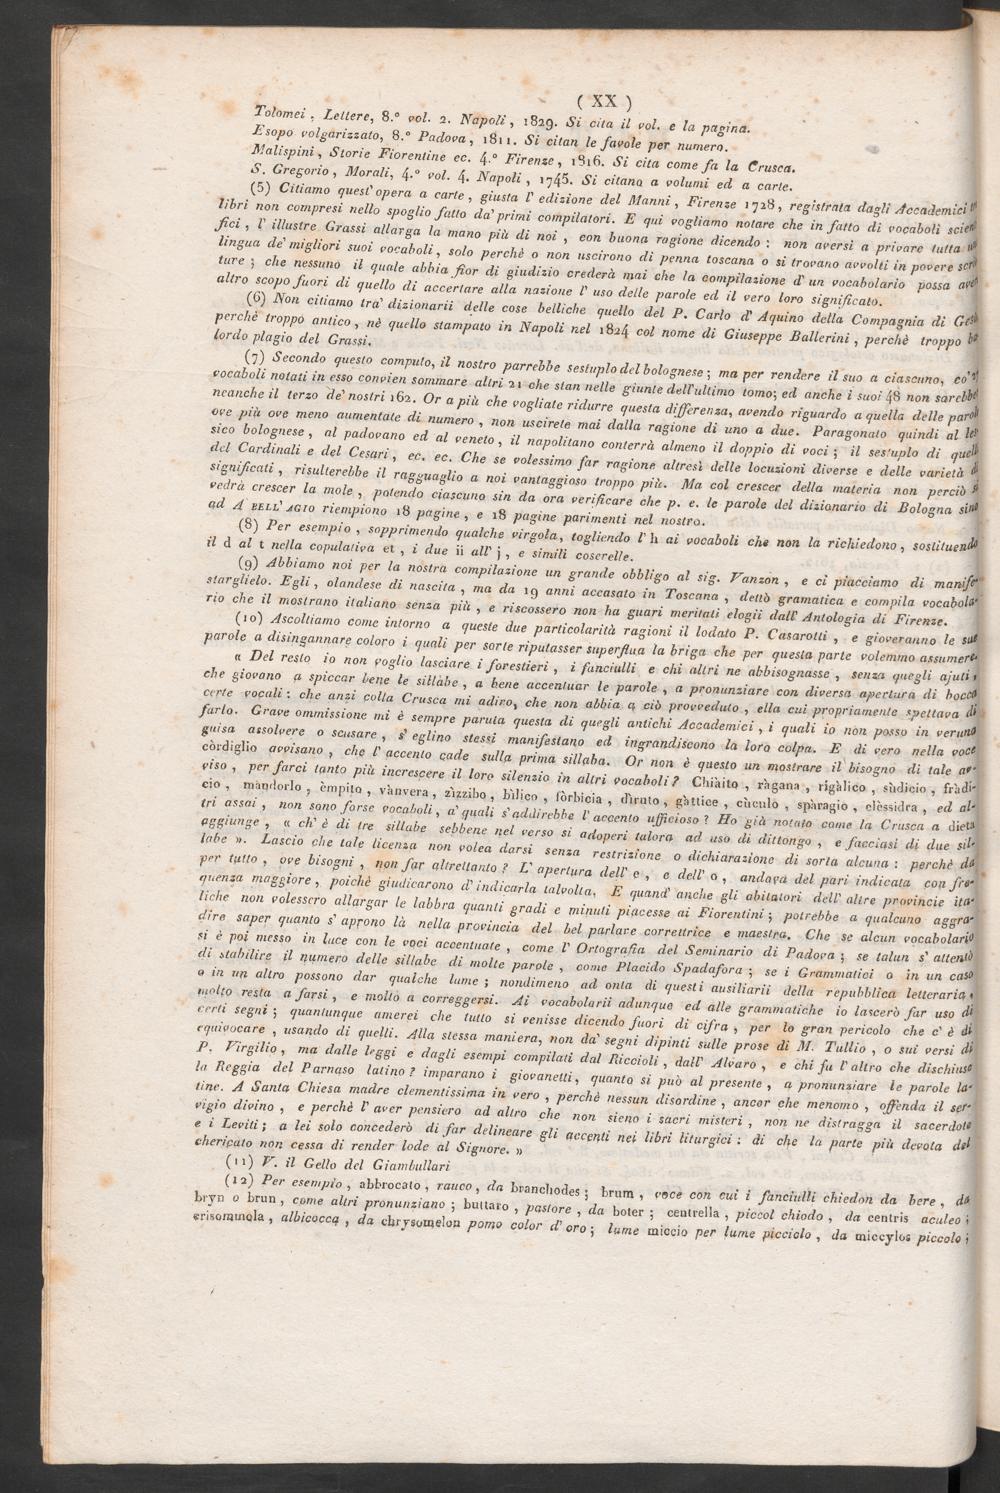 ( XX )
Tolomei, Lettere, 8.° vol. 2. Napoli, 1829. Si cita il vol. e la pagina.
Esopo volgarizzato, 8.° Padova, 1811. Si citan le favole per numero.
Malispini, Storie Fiorentine ec. 4.° Firenze, 1816. Si cita come fa la Crusca.
S. Gregorio, Morali, 4.° vol. 4. Napoli, 1745. Si citano a volumi ed a carte.
(5) Citiamo quest' opera a carte, giusta l' edizione del Manni, Firenze 1728, registrata dagli Accademici
libri non compresi nello spoglio fatto da' primi compilatori. E qui vogliamo notare che in fatto di vocaboli scien
fici, l' illustre Grassi allarga la mano più di noi, con buona ragione dicendo: non aversi a privare tutta
lingua de' migliori suoi vocaboli, solo perchè o non uscirono di penna toscana o si trovano avvolti in povere scrit
ture; che nessuno il quale abbia fior di giudizio crederà mai che la compilazione d' un vocabolario possa aver
altro scopo fuori di quello di accertare alla nazione l' uso delle parole ed il vero loro significato.
(6) Non citiamo tra' dizionarii delle cose belliche quello del P. Carlo d' Aquino della Compagnia di Gesù
perchè troppo antico, nè quello stampato in Napoli nel 1824 col nome di Giuseppe Ballerini, perchè troppo ba
lordo plagio del Grassi.
(7) Secondo questo computo, il nostro parrebbe sestuplo del bolognese; ma per rendere il suo a ciascuno, co'
vocaboli notati in esso convien sommare altri 21 che stan nelle giunte dell' ultimo tomo; ed anche i suoi 48 non sarebber
neanche il terzo de' nostri 162. Or a più che vogliate ridurre questa differenza, avendo riguardo a quella delle parole
ove più ove meno aumentate di numero, non uscirete mai dalla ragione di uno a due. Paragonato quindi al les
sico bolognese, al padovano ed al veneto, il napolitano conterrà almeno il doppio di voci; il sestuplo di quelli
del Cardinali e del Cesari, ec. ec. Che se volessimo far ragione altresì delle locuzioni diverse e delle varietà di
significati, risulterebbe il ragguaglio a noi vantaggioso troppo più. Ma col crescer della materia non perciò si
vedrà crescer la mole, potendo ciascuno sin da ora verificare che p. e. le parole del dizionario di Bologna sino
ad A BELL' AGIO riempiono 18 pagine, e 18 pagine parimenti nel nostro.
(8) Per esempio, sopprimendo qualche virgola, togliendo l' h ai vocaboli che non la richiedono, sostituendo
il d al t nella copulativa et, i due ii all' j, e simili coserelle.
(9) Abbiamo noi per la nostra compilazione un grande obbligo al sig. Vanzon, e ci piacciamo di manife-
starglielo. Egli, olandese di nascita, ma da 19 anni accasato in Toscana, dettò gramatica e compila vocabola-
rio che il mostrano italiano senza più, e riscossero non ha guari meritati elogii dall' Antologia di Firenze.
(10) Ascoltiamo come intorno a queste due particolarità ragioni il lodato P. Casarotti, e gioveranno le sue
parole a disingannare coloro i quali per sorte riputasser superflua la briga che per questa parte volemmo assumere.
« Del resto io non voglio lasciare i forestieri, i fanciulli e chi altri ne abbisognasse, senza quegli ajuti,
che giovano a spiccar bene le sillabe, a bene accentuar le parole, a pronunziare con diversa apertura di bocca
certe vocali: che anzi colla Crusca mi adiro, che non abbia a ciò provveduto, ella cui propriamente spettava di
farlo. Grave ommissione mi è sempre paruta questa di quegli antichi Accademici, i quali io non posso in veruna
guisa assolvere o scusare, s' eglino stessi manifestano ed ingrandiscono la loro colpa. E di vero nella voce
còrdiglio avvisano, che l' accento cade sulla prima sillaba. Or non è questo un mostrare il bisogno di tale av-
viso, per farci tanto più increscere il loro silenzio in altri vocaboli? Chiàito, ràgana, rigàlico, sùdicio, fràdi-
cio, màndorlo, èmpito, vànvera, zìzzibo, bìlico, fòrbicia, dìruto, gàttice, cùculo, spàragio, clèssidra, ed al-
tri assai, non sono forse vocaboli, a' quali s' addirebbe l' accento ufficioso? Ho già notato come la Crusca a dieta
aggiunge, « ch' è di tre sillabe sebbene nel verso si adoperi talora ad uso di dittongo, e facciasi di due sil-
labe ». Lascio che tale licenza non volea darsi senza restrizione o dichiarazione di sorta alcuna: perchè da
per tutto, ove bisogni, non far altrettanto? L' apertura dell' e, e dell' o, andava del pari indicata con fre-
quenza maggiore, poichè giudicarono d' indicarla talvolta. E quand' anche gli abitatori dell' altre provincie ita-
liche non volessero allargar le labbra quanti gradi e minuti piacesse ai Fiorentini; potrebbe a qualcuno aggra-
dire saper quanto s' aprono là nella provincia del bel parlare correttrice e maestra. Che se alcun vocabolario
si è poi messo in luce con le voci accentuate, come l' Ortografia del Seminario di Padova; se talun s' attentò
di stabilire il numero delle sillabe di molte parole, come Placido Spadafora; se i Grammatici o in un caso
o in un altro possono dar qualche lume; nondimeno ad onta di questi ausiliarii della repubblica letteraria,
molto resta a farsi, e molto a correggersi. Ai vocabolarii adunque ed alle grammatiche io lascerò far uso di
certi segni; quantunque amerei che tutto si venisse dicendo fuori di cifra, per lo gran pericolo che c' è di
equivocare, usando di quelli. Alla stessa maniera, non da' segni dipinti sulle prose di M. Tullio, o sui versi di
P. Virgilio, ma dalle leggi e dagli esempi compilati dal Riccioli, dall' Alvaro, e chi fu l' altro che dischiuse
la Reggia del Parnaso latino? imparano i giovanetti, quanto si può al presente, a pronunziare le parole la-
tine. A Santa Chiesa madre clementissima in vero, perchè nessun disordine, ancor che menomo, offenda il ser-
vigio divino, e perchè l' aver pensiero ad altro che non sieno i sacri misteri, non ne distragga il sacerdote
e i Leviti; a lei solo concederò di far delineare gli accenti nei libri liturgici: di che la parte più devota del
chericato non cessa di render lode al Signore. »
(11) V. il Gello del Giambullari
(12) Per esempio, abbrocato, rauco, da branchodes; brum, voce con cui i fanciulli chiedon da bere, da
bryn o brun, come altri pronunziano; buttaro, pastore, da boter; centrella, piccol chiodo, da centris aculeo;
crisommola, albicocca, da chrysomelon pomo color d' oro; lume miccio per lume picciolo, da miccylos piccolo;